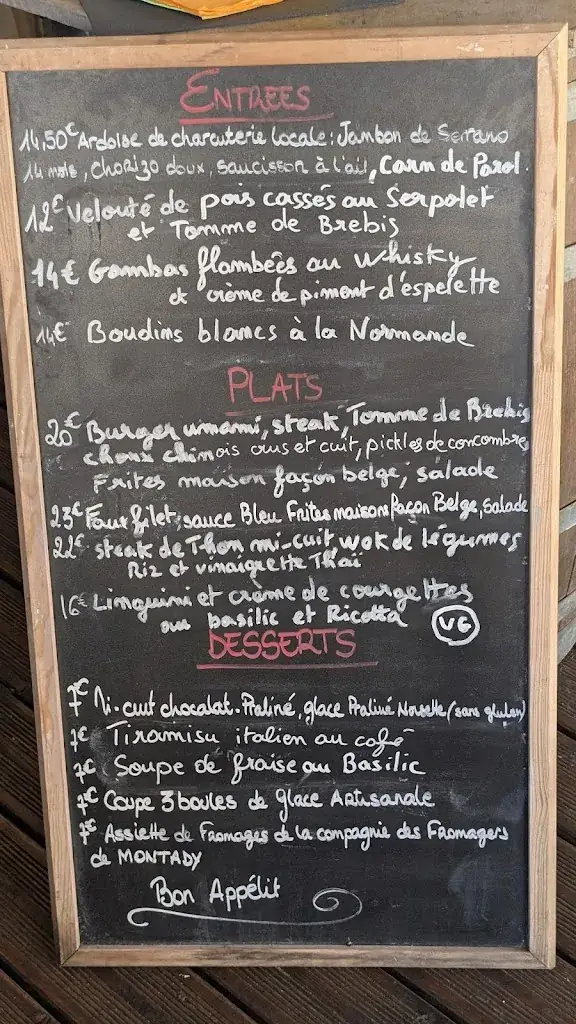 ENTREES
14,50€ Ardoise de charcuterie locale: Jambon de Serrano
14 mois, chorizo doux, saucisson à l'ail, Carn de Parol.
12€ Velouté de pois cassés au Serpolet
et Tomme de Brebis
14€ Gambas flambées au whisky
et crème de piment d'espelette
14€ Boudins blancs à la Normande
PLATS
20€ Burger umami, steak, Tomme de Brebis
choux chinois crus et cuit, pickles de concombre,
Frites maison façon belge, salade
23€ Faux filet, sauce Bleu Frites maison façon Belge, Salade
22€ steak de Thon mi-cuit wok de légumes
Riz et vinaigrette Thaï
16€ Linguini et crème de courgettes
au basilic et Ricotta VG
DESSERTS
7€ Mi-cuit chocolat-Praliné, glace Praliné Noisette (sans gluten)
7€ Tiramisu italien au café
7€ Soupe de fraise au Basilic
7€ Coupe 3 boules de glace Artisanale
7€ Assiette de Fromages de la compagnie des Fromagers
de MONTADY
Bon Appétit